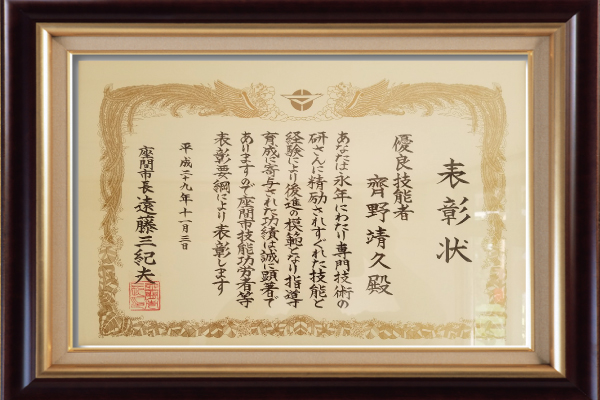 表彰状
優良技能者
齊野清久殿
あなたは永年にわたり専門技術の
研さんに精励されすぐれた技能と
経験により後進の模範となり指導
育成に寄与された功績は誠に顕著で
ありますので座間市技能功労者等
表彰要綱により表彰します
平成二十九年十一月三日
座間市長遠藤三紀夫